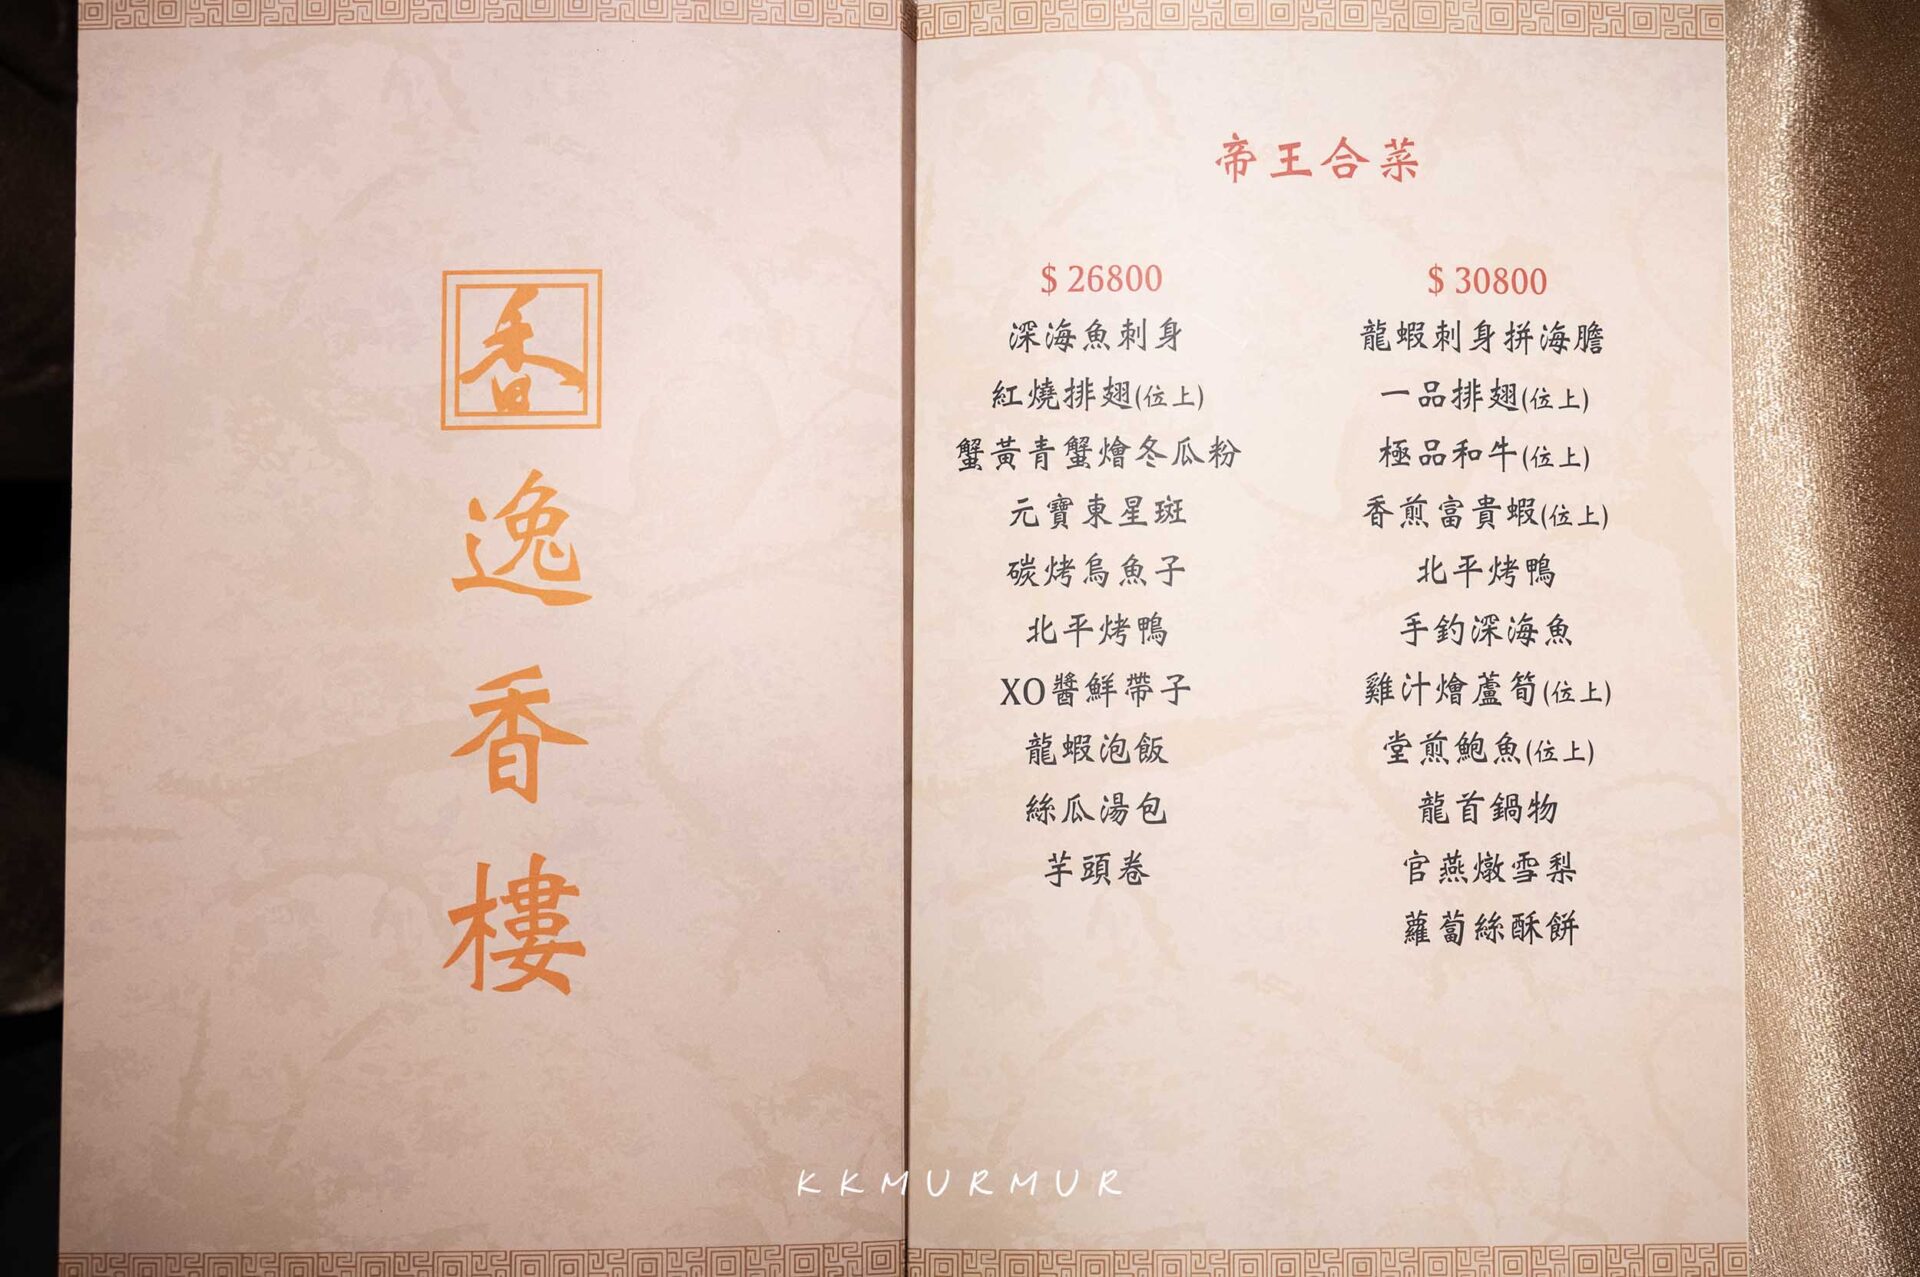 香
逸香樓
帝王合菜
$ 26800
深海魚刺身
紅燒排翅(位上)
蟹黃青蟹燴冬瓜粉
元寶東星斑
碳烤烏魚子
北平烤鴨
XO醬鮮帶子
龍蝦泡飯
絲瓜湯包
芋頭卷
$ 30800
龍蝦刺身拼海膽
一品排翅(位上)
極品和牛(位上)
香煎富貴蝦(位上)
北平烤鴨
手釣深海魚
雞汁燴蘆筍(位上)
堂煎鮑魚(位上)
龍首鍋物
官燕燉雪梨
蘿蔔絲酥餅
KKMURMUR